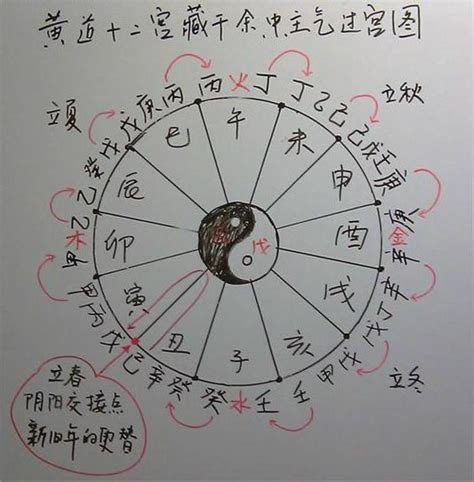 黄道十二宫藏干余中主气过宫图
丙 火 丁
丁 乙 己
立秋
己 戊 壬 庚
金
辛
辛 丁 戊
立冬
戊 甲 壬
壬 水 癸
癸 辛 己
戊 丙 甲
甲 木 乙
乙 癸 戊
立夏
戊 庚 丙
午
未
申
酉
戌
亥
子
丑
寅
卯
辰
巳
戊
立春
阴阳交接点
新旧年的更替